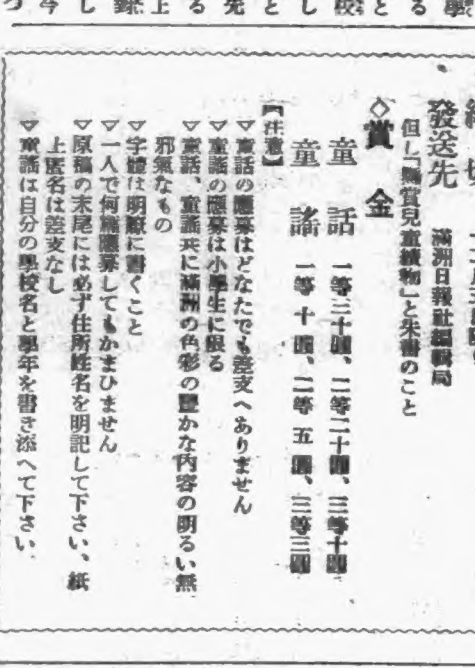 發送先 滿洲日報社編輯局
但し「懸賞兒童讀物」と朱書のこと
◇賞金
童話 一等三十圓、二等二十圓、三等十圓
童謠 一等十圓、二等五圓、三等三圓
【注意】
▽童話の應募はどなたでも差支へありません
▽童謠の應募は小學生に限る
▽童話、童謠共に滿洲の色彩の豐かな内容の明るい無
邪氣なもの
▽字體は明瞭に書くこと
▽一人で何篇應募してもかまひません
▽原稿の末尾には必ず住所姓名を明記して下さい、紙
上匿名は差支なし
▽童謠は自分の學校名と學年を書き添へて下さい